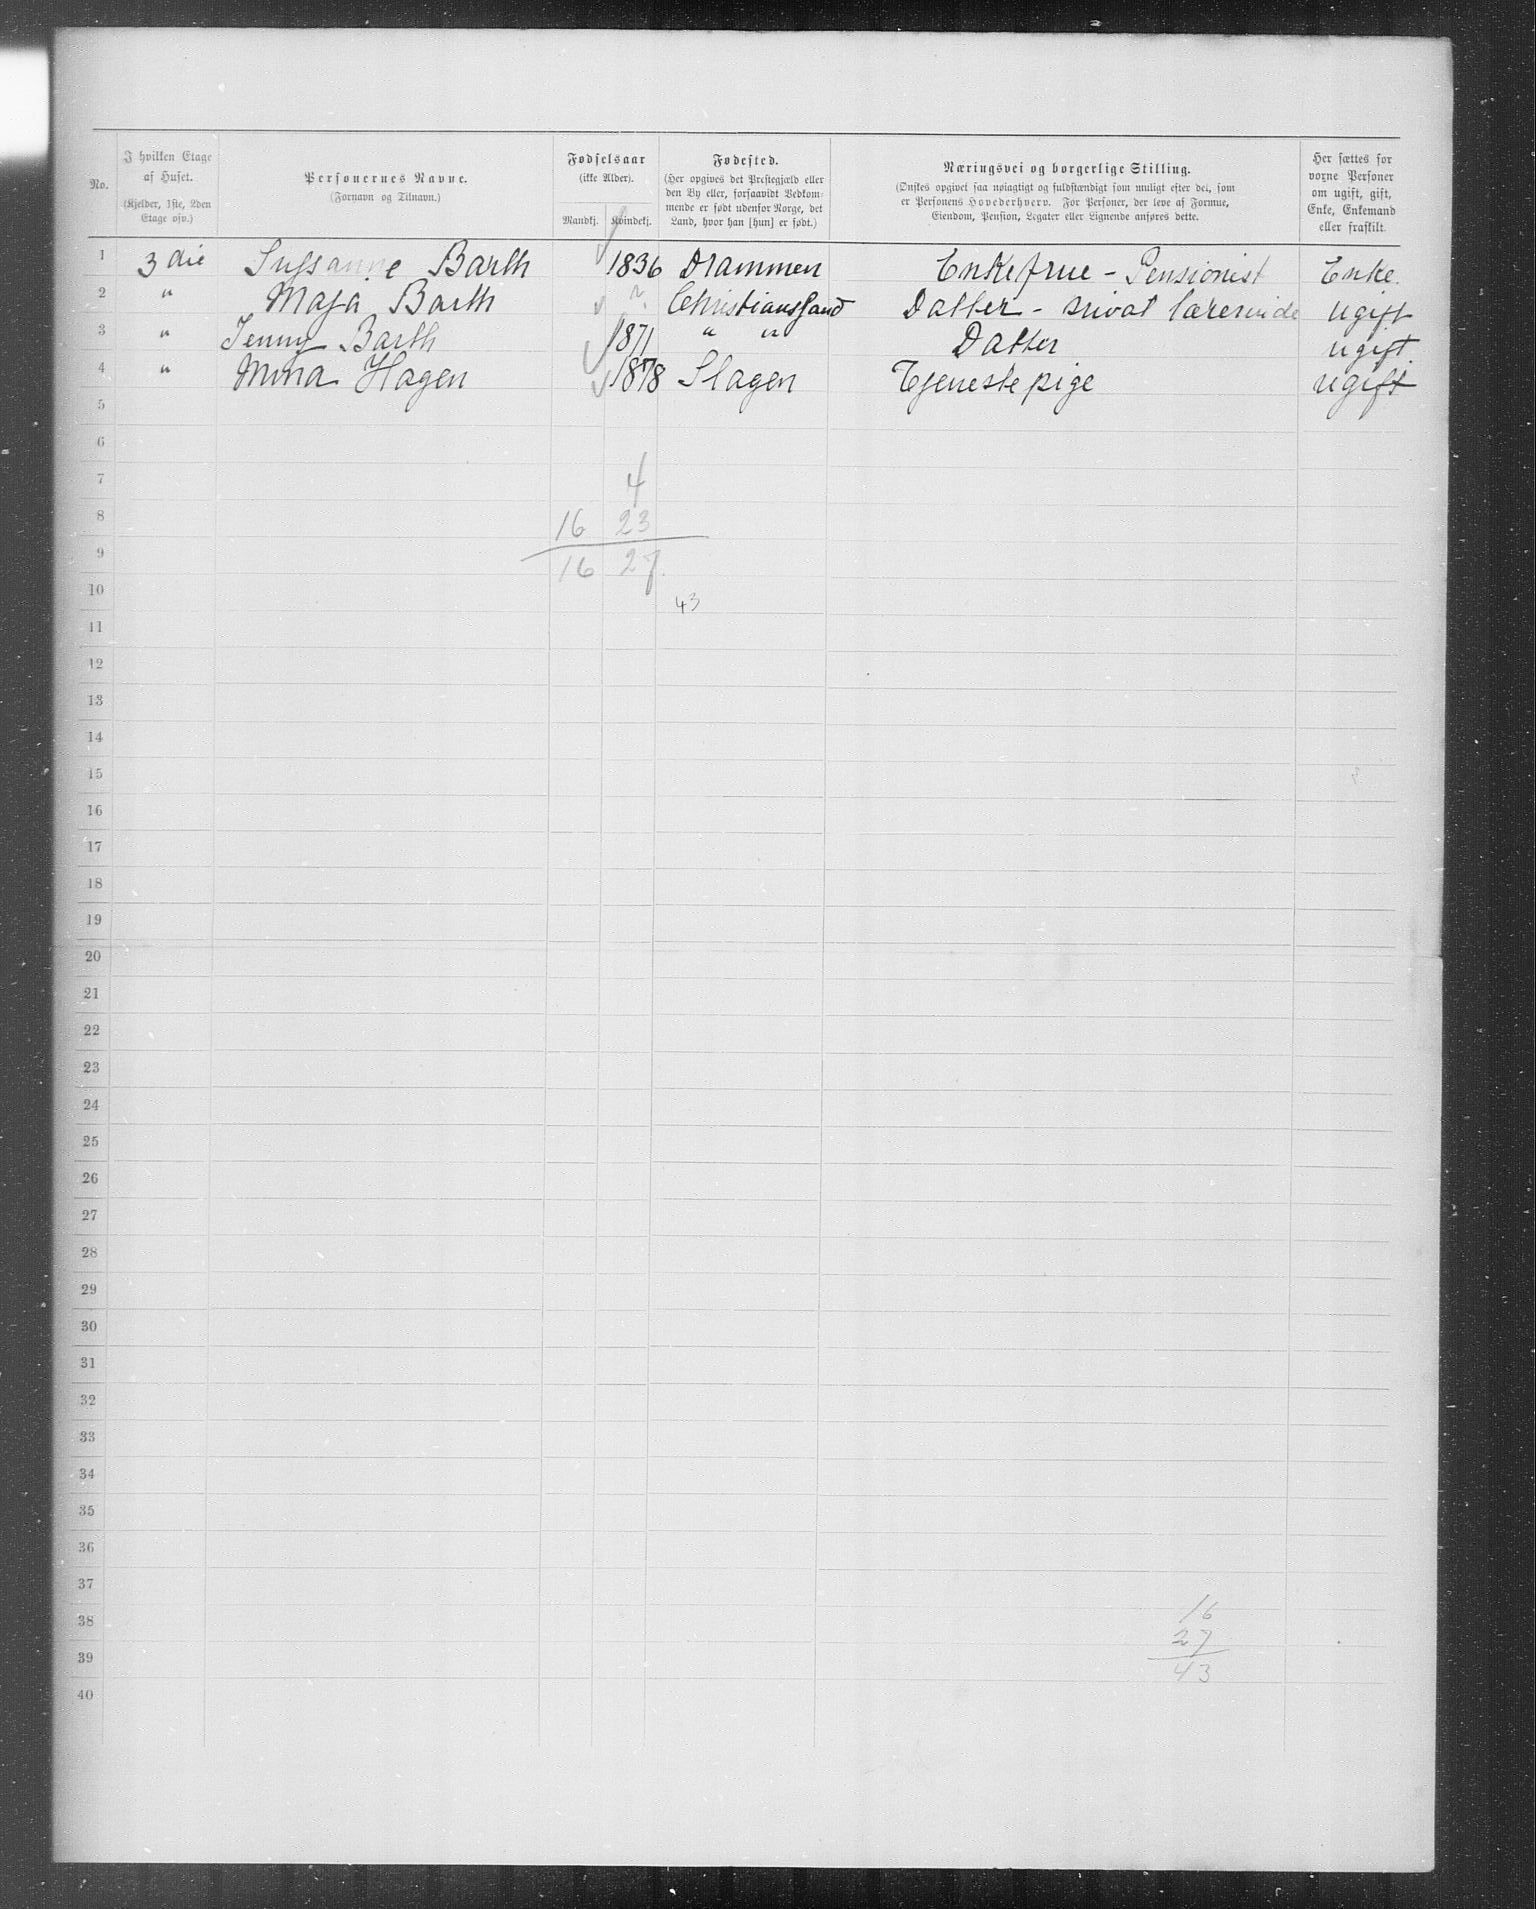 No.
I hvilken Etage
af Huset.
(Kjelder, 1ste, 2den
Etage osv.)
Personernes Navne.
(Fornavn og Tilnavn.)
Fødselsaar
(ikke Alder).
Mandkj. Kvindekj.
Fødested.
(Her opgives det Prestegjæld eller
den By eller, forsaavidt Vedkom-
mende er født udenfor Norge, det
Land, hvor han [hun] er født.)
Næringsvei og borgerlige Stilling.
(Ønskes opgivet saa nøiagtigt og fuldstændigt som muligt efter dei, som
er Personens Hovederhverv. For Personer, der leve af Formue,
Eiendom, Pension, Legater eller Lignende anføres dette.
Her sættes for
voxne Personer
om ugift, gift,
Enke, Enkemand
eller fraskilt.
1 3 die Sussanne Barth 1836 Drammen Enkefrue - Pensionist Enke.
2 " Maja Barth ? Christianssand Datter - privat lærerinde ugift
3 " Jenny Barth 1871 " " Datter ugift.
4 " Mina Hagen 1878 Slagen Tjenestepige ugift
5
6
7 4
8 16 23
9 16 27.
10 43
11
12
13
14
15
16
17
18
19
20
21
22
23
24
25
26
27
28
29
30
31
32
33
34
35
36
37
38 16
39 27
40 43